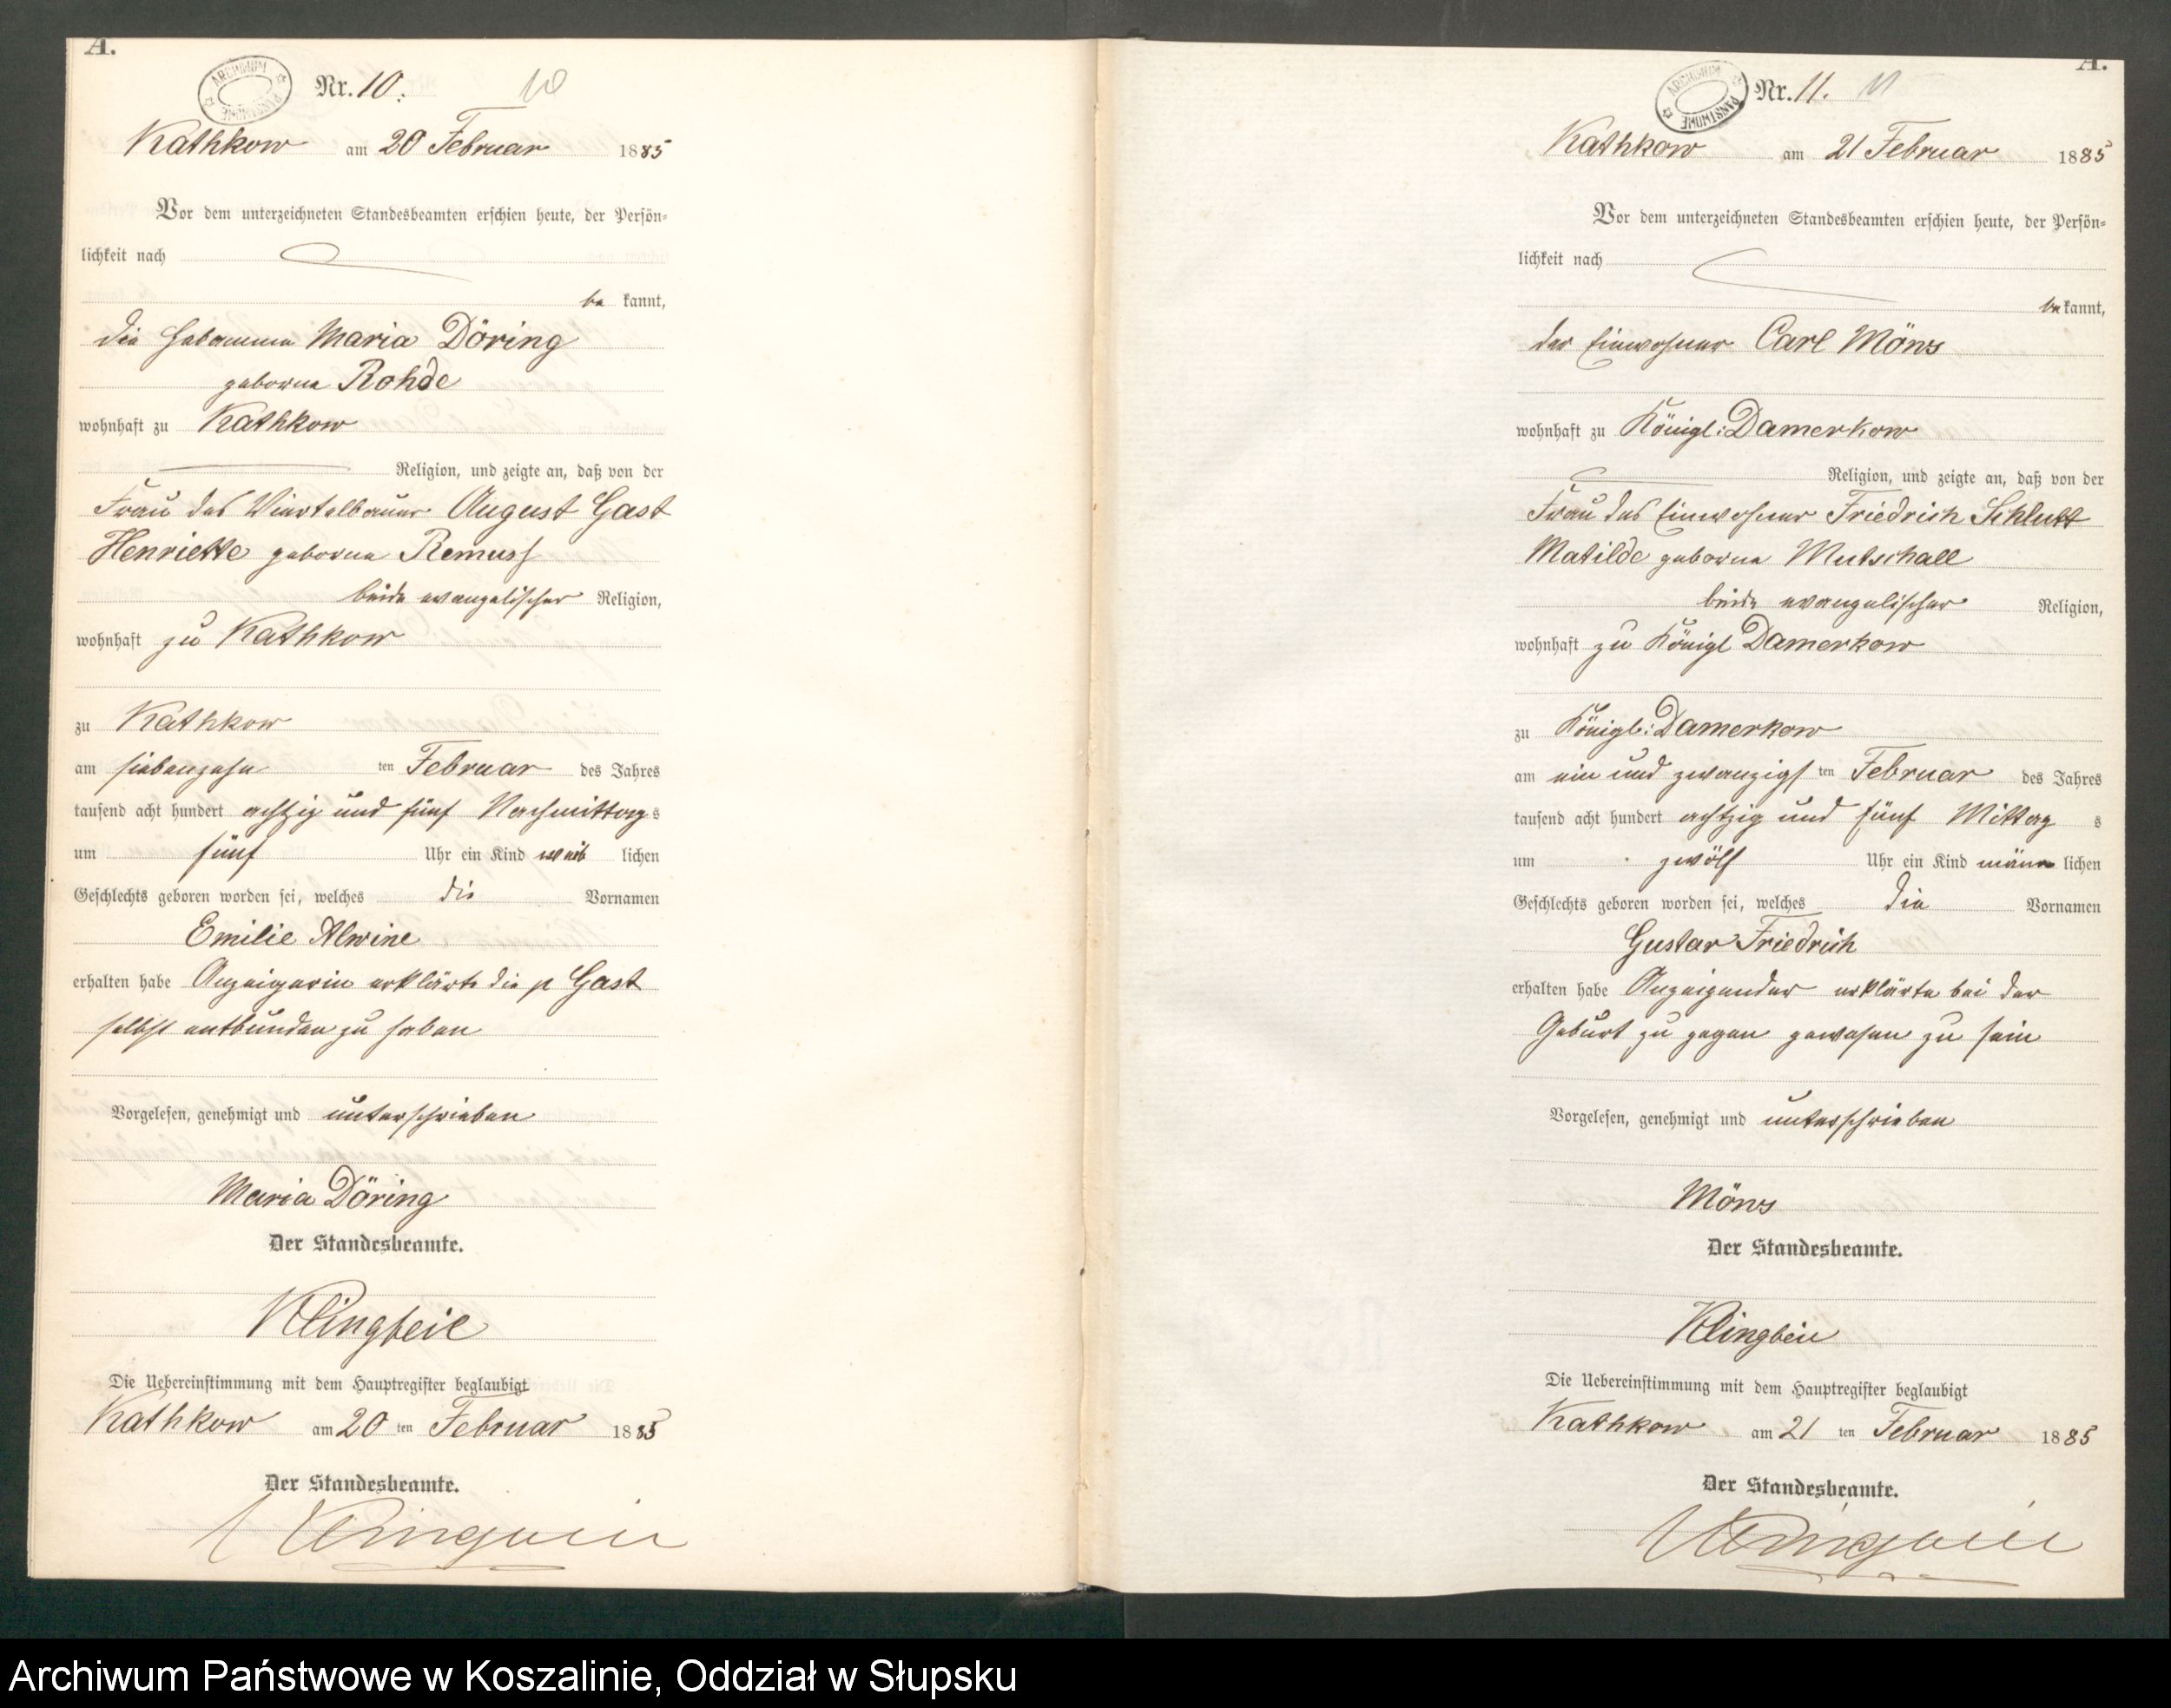 A.
ARCHIWUM PAŃSTWOWE
Nr. 10. 10
Kathkow am 20 Februar 1885
Vor dem unterzeichneten Standesbeamten erschien heute, der Persön-
lichkeit nach
be kannt,
die Hebamme Maria Döring
geborne Rohde
wohnhaft zu Kathkow
Religion, und zeigte an, daß von der
Frau des Viertelbauer August Gast
Henriette geborne Remuss
beide evangelischer Religion,
wohnhaft zu Kathkow
zu Kathkow
am siebenzehn ten Februar des Jahres
tausend acht hundert achtzig und fünf Nachmittags
um fünf Uhr ein Kind weib lichen
Geschlechts geboren worden sei, welches die Vornamen
Emilie Alwine
erhalten habe Anzeigerin erklärte die p Gast
selbst entbunden zu haben
Vorgelesen, genehmigt und unterschrieben
Maria Döring
Der Standesbeamte.
Klingbeil
Die Uebereinstimmung mit dem Hauptregister beglaubigt
Kathkow am 20 ten Februar 1885
Der Standesbeamte.
Klingbeil
A.
ARCHIWUM PAŃSTWOWE
Nr. 11. 11
Kathkow am 21 Februar 1885
Vor dem unterzeichneten Standesbeamten erschien heute, der Persön-
lichkeit nach
be kannt,
der Einwohner Carl Möws
wohnhaft zu Königl: Damerkow
Religion, und zeigte an, daß von der
Frau des Einwohner Friedrich Schlutt
Matilde geborne Mutschall
beide evangelischer Religion,
wohnhaft zu Königl Damerkow
zu Königl: Damerkow
am ein und zwanzigs ten Februar des Jahres
tausend acht hundert achtzig und fünf Mittag s
um zwölf Uhr ein Kind männ lichen
Geschlechts geboren worden sei, welches die Vornamen
Gustav Friedrich
erhalten habe Anzeigender erklärte bei der
Geburt zu gegen gewesen zu sein
Vorgelesen, genehmigt und unterschrieben
Möws
Der Standesbeamte.
Klingbeil
Die Uebereinstimmung mit dem Hauptregister beglaubigt
Kathkow am 21 ten Februar 1885
Der Standesbeamte.
Klingbeil
Archiwum Państwowe w Koszalinie, Oddział w Słupsku